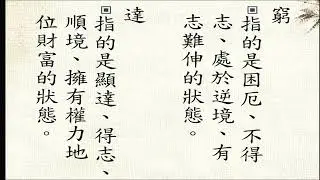 窮
▣指的是困厄、不得
志、處於逆境、有
志難伸的狀態。
達
▣指的是顯達、得志、
順境、擁有權力地
位財富的狀態。